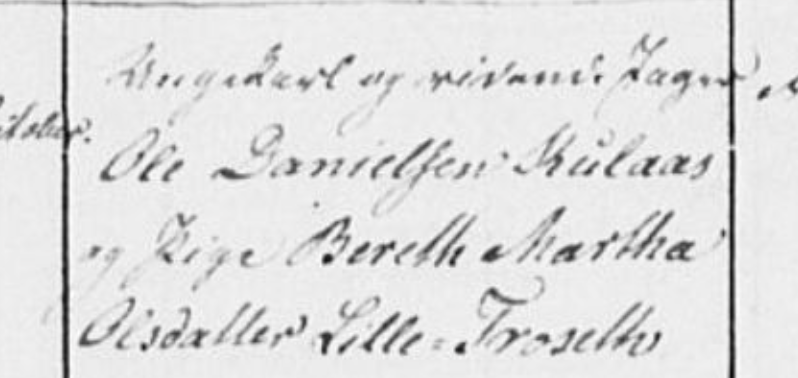 Ungekarl og ridend: Jager
Ole Danielsen Kulaas
og Pige Bereth Martha
Olsdatter Lille-Troseth